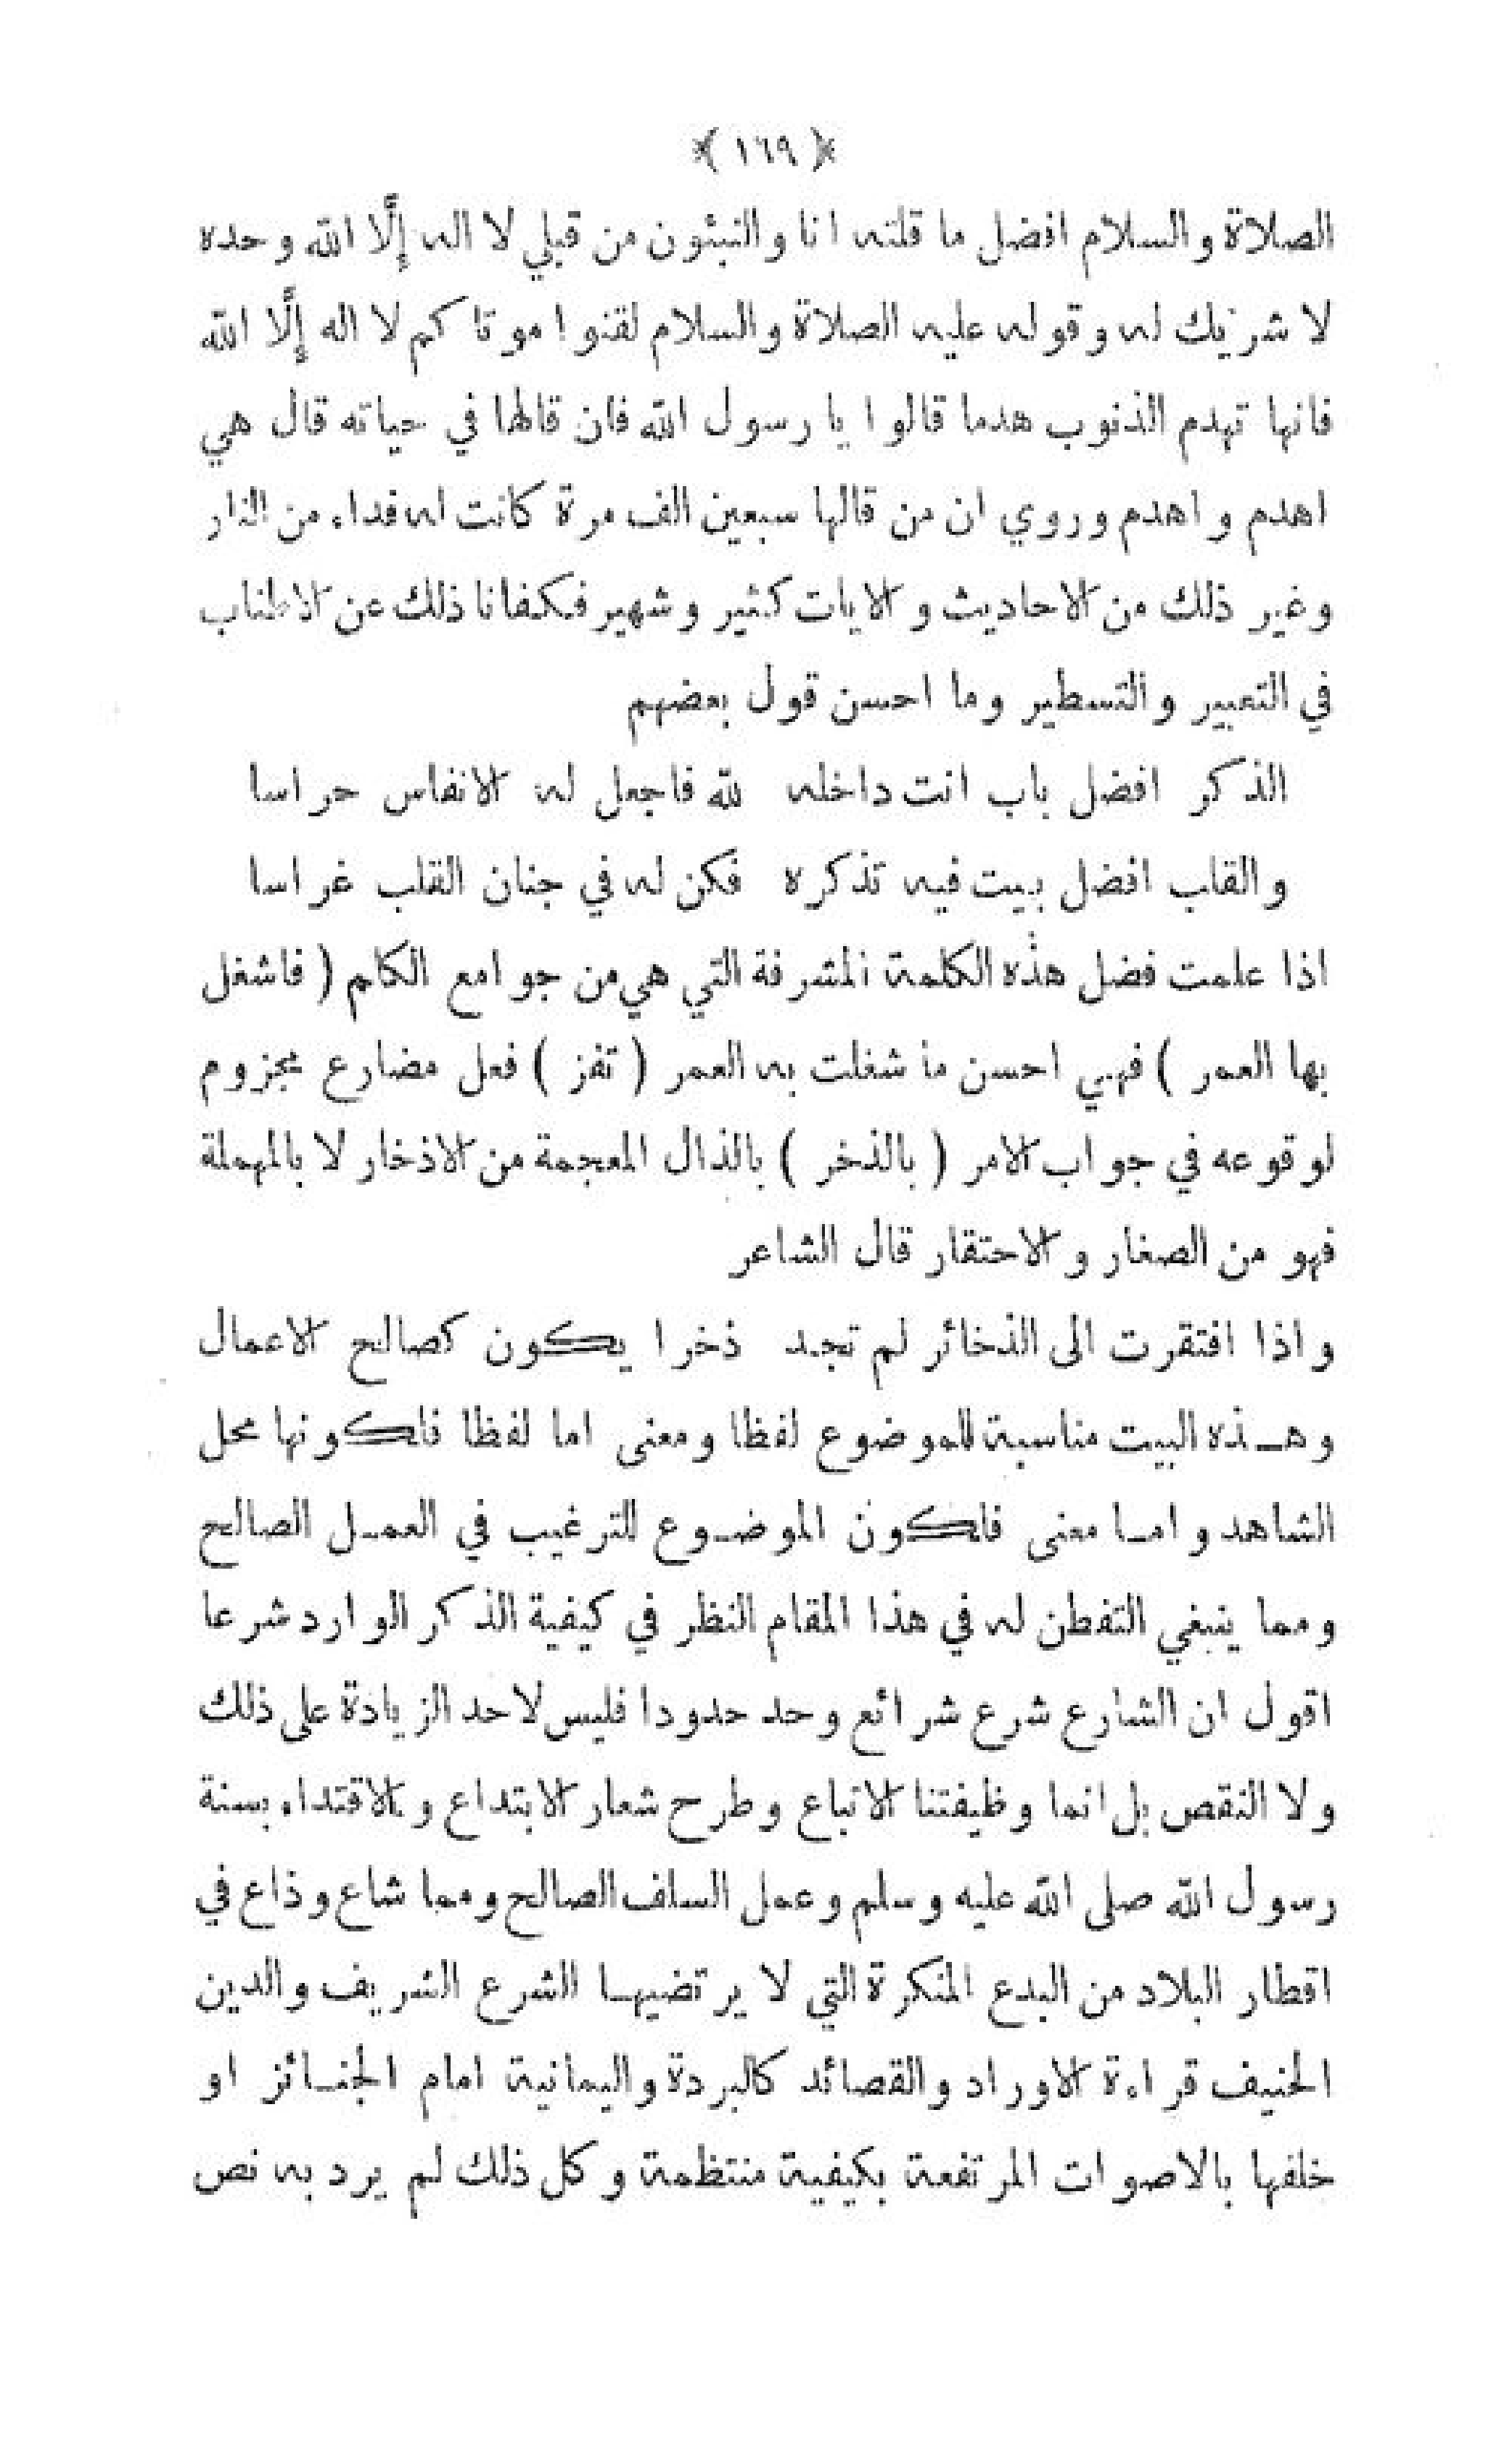 ﴿ ١٦٩ ﴾
الصلاة والسلام افضل ما قلته انا والنبئون من قبلي لا اله إلَّا الله وحده
لا شريك له وقوله عليه الصلاة والسلام لقنوا موتاكم لا اله إلَّا الله
فانها تهدم الذنوب هدما قالوا يا رسول الله فان قالها في حياته قال هي
اهدم واهدم وروي ان من قالها سبعين الف مرة كانت له فداء من النار
وغير ذلك من الاحاديث والايات كثير وشهير فكفانا ذلك عن الاطناب
في التعبير والتسطير وما احسن قول بعضهم
الذكر افضل باب انت داخله لله فاجعل له الانفاس حراسا
والقلب افضل بيت فيه تذكره فكن له في جنان القلب غراسا
اذا علمت فضل هذه الكلمة المشرفة التي هي من جوامع الكلم ( فاشغل
بها العمر ) فهي احسن ما شغلت به العمر ( تفز ) فعل مضارع مجزوم
لوقوعه في جواب الامر ( بالذخر ) بالذال المعجمة من الاذخار لا بالمهملة
فهو من الصغار والاحتقار قال الشاعر
واذا افتقرت الى الذخائر لم تجد ذخرا يكون كصالح الاعمال
وهذه البيت مناسبة للموضوع لفظا ومعنى اما لفظا فلكونها محل
الشاهد واما معنى فلكون الموضوع للترغيب في العمل الصالح
ومما ينبغي التفطن له في هذا المقام النظر في كيفية الذكر الوارد شرعا
اقول ان الشارع شرع شرائع وحد حدودا فليس لاحد الزيادة على ذلك
ولا النقص بل انما وظيفتنا الاتباع وطرح شعار الابتداع والاقتداء بسنة
رسول الله صلى الله عليه وسلم وعمل السلف الصالح ومما شاع وذاع في
اقطار البلاد من البدع المنكرة التي لا يرتضيها الشرع الشريف والدين
الحنيف قراءة الاوراد والقصائد كالبردة واليمانية امام الجنائز او
خلفها بالاصوات المرتفعة بكيفية منتظمة وكل ذلك لم يرد به نص